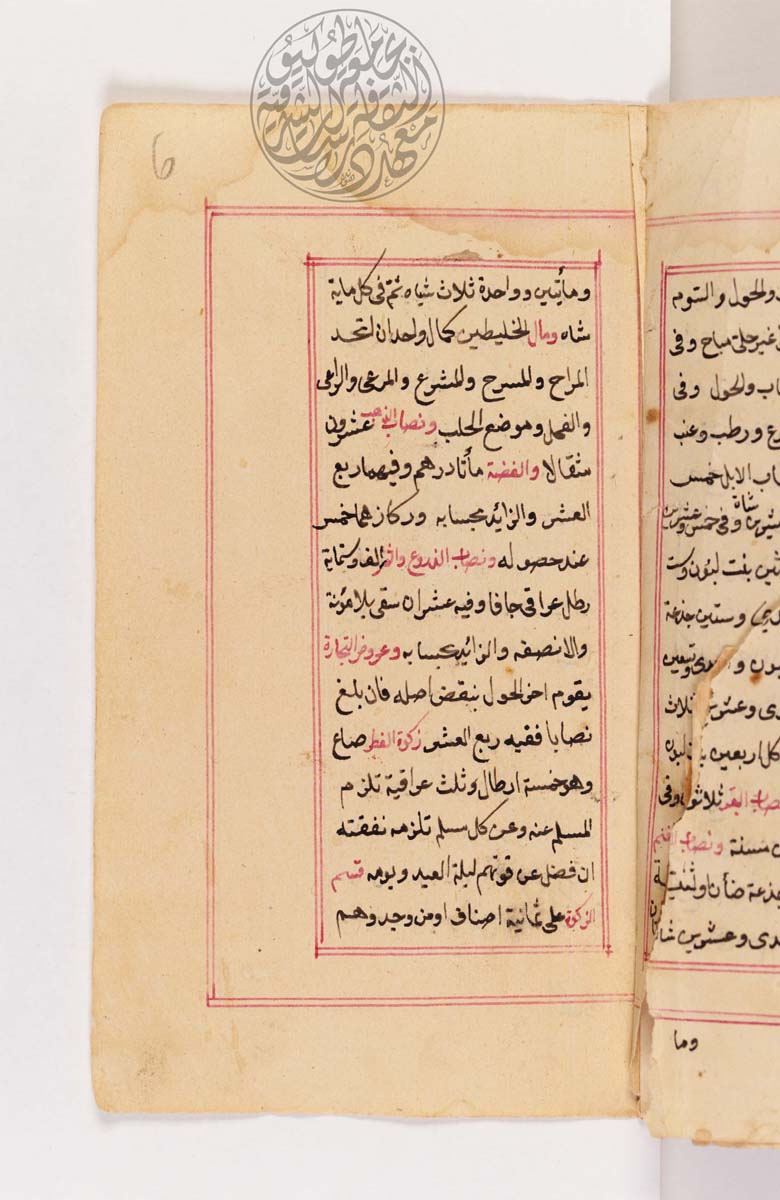 ومأيتين وواحدة ثلاث شياه ثم في كل ماية
شاه ومال الخليطين كمال واحد ان اتحد
المراح والمسرح والمشرع والمرعى والراعى
والفحل وموضع الحلب ونصاب الذهب عشرون
مثقالا والفضة مأتا درهم وفيهما ربع
العشر والزائد بحسابه وركازهما خمس
عند حصوله ونصاب الزروع والثمر الف وستماية
رطل عراقى جافا وفيه عشر ان سقى بلا مؤنة
والا نصفه والزائد بحسابه وعروض التجارة
يقوم اخر الحول بنقض اصله فان بلغ
نصابا ففيه ربع العشر زكوة الفطر صاع
وهو خمسة ارطال وثلث عراقية تلزم
المسلم عنه وعن كل مسلم تلزمه نفقته
ان فضل عن قوتهم ليلة العيد ويومه قسم
الزكوة على ثمانية اصناف او من وجد وهم
6
والحول والسوم
غير حلى مباح وفى
اب والحول وفى
ع ورطب وعنب
اب الابل خمس
شاة وفى خمس وعشرين
ثين بنت لبون وست
وستين جذعة
دى وعشرين ثلاث
كل اربعين بنت لبون
صاب البقر ثلاثون وفى
مسنة ونصاب الغنم
جذعة ضأن او ثنية
دى وعشرين شاتا
وما